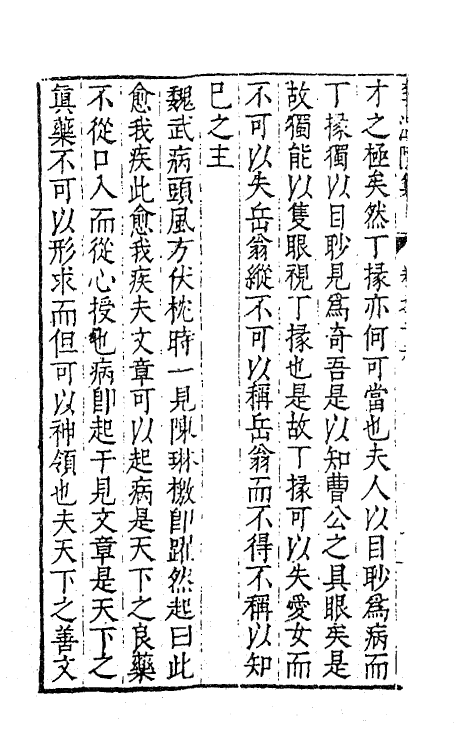 才之極矣然丁掾亦何可當也夫人以目眇爲病而
丁掾獨以目眇見爲奇吾是以知曹公之具眼矣是
故獨能以隻眼視丁掾也是故丁掾可以失愛女而
不可以失岳翁縱不可以稱岳翁而不得不稱以知
巳之主
魏武病頭風方伏枕時一見陳琳檄卽躍然起曰此
愈我疾此愈我疾夫文章可以起病是天下之良藥
不從口入而從心授也病卽起于見文章是天下之
眞藥不可以形求而但可以神領也夫天下之善文